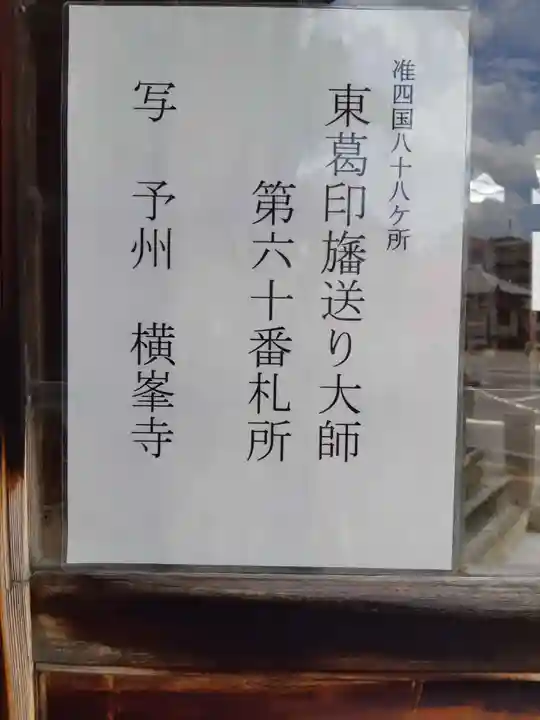 准四国八十八ケ所
東葛印旛送り大師
第六十番札所
写 予州 横峯寺